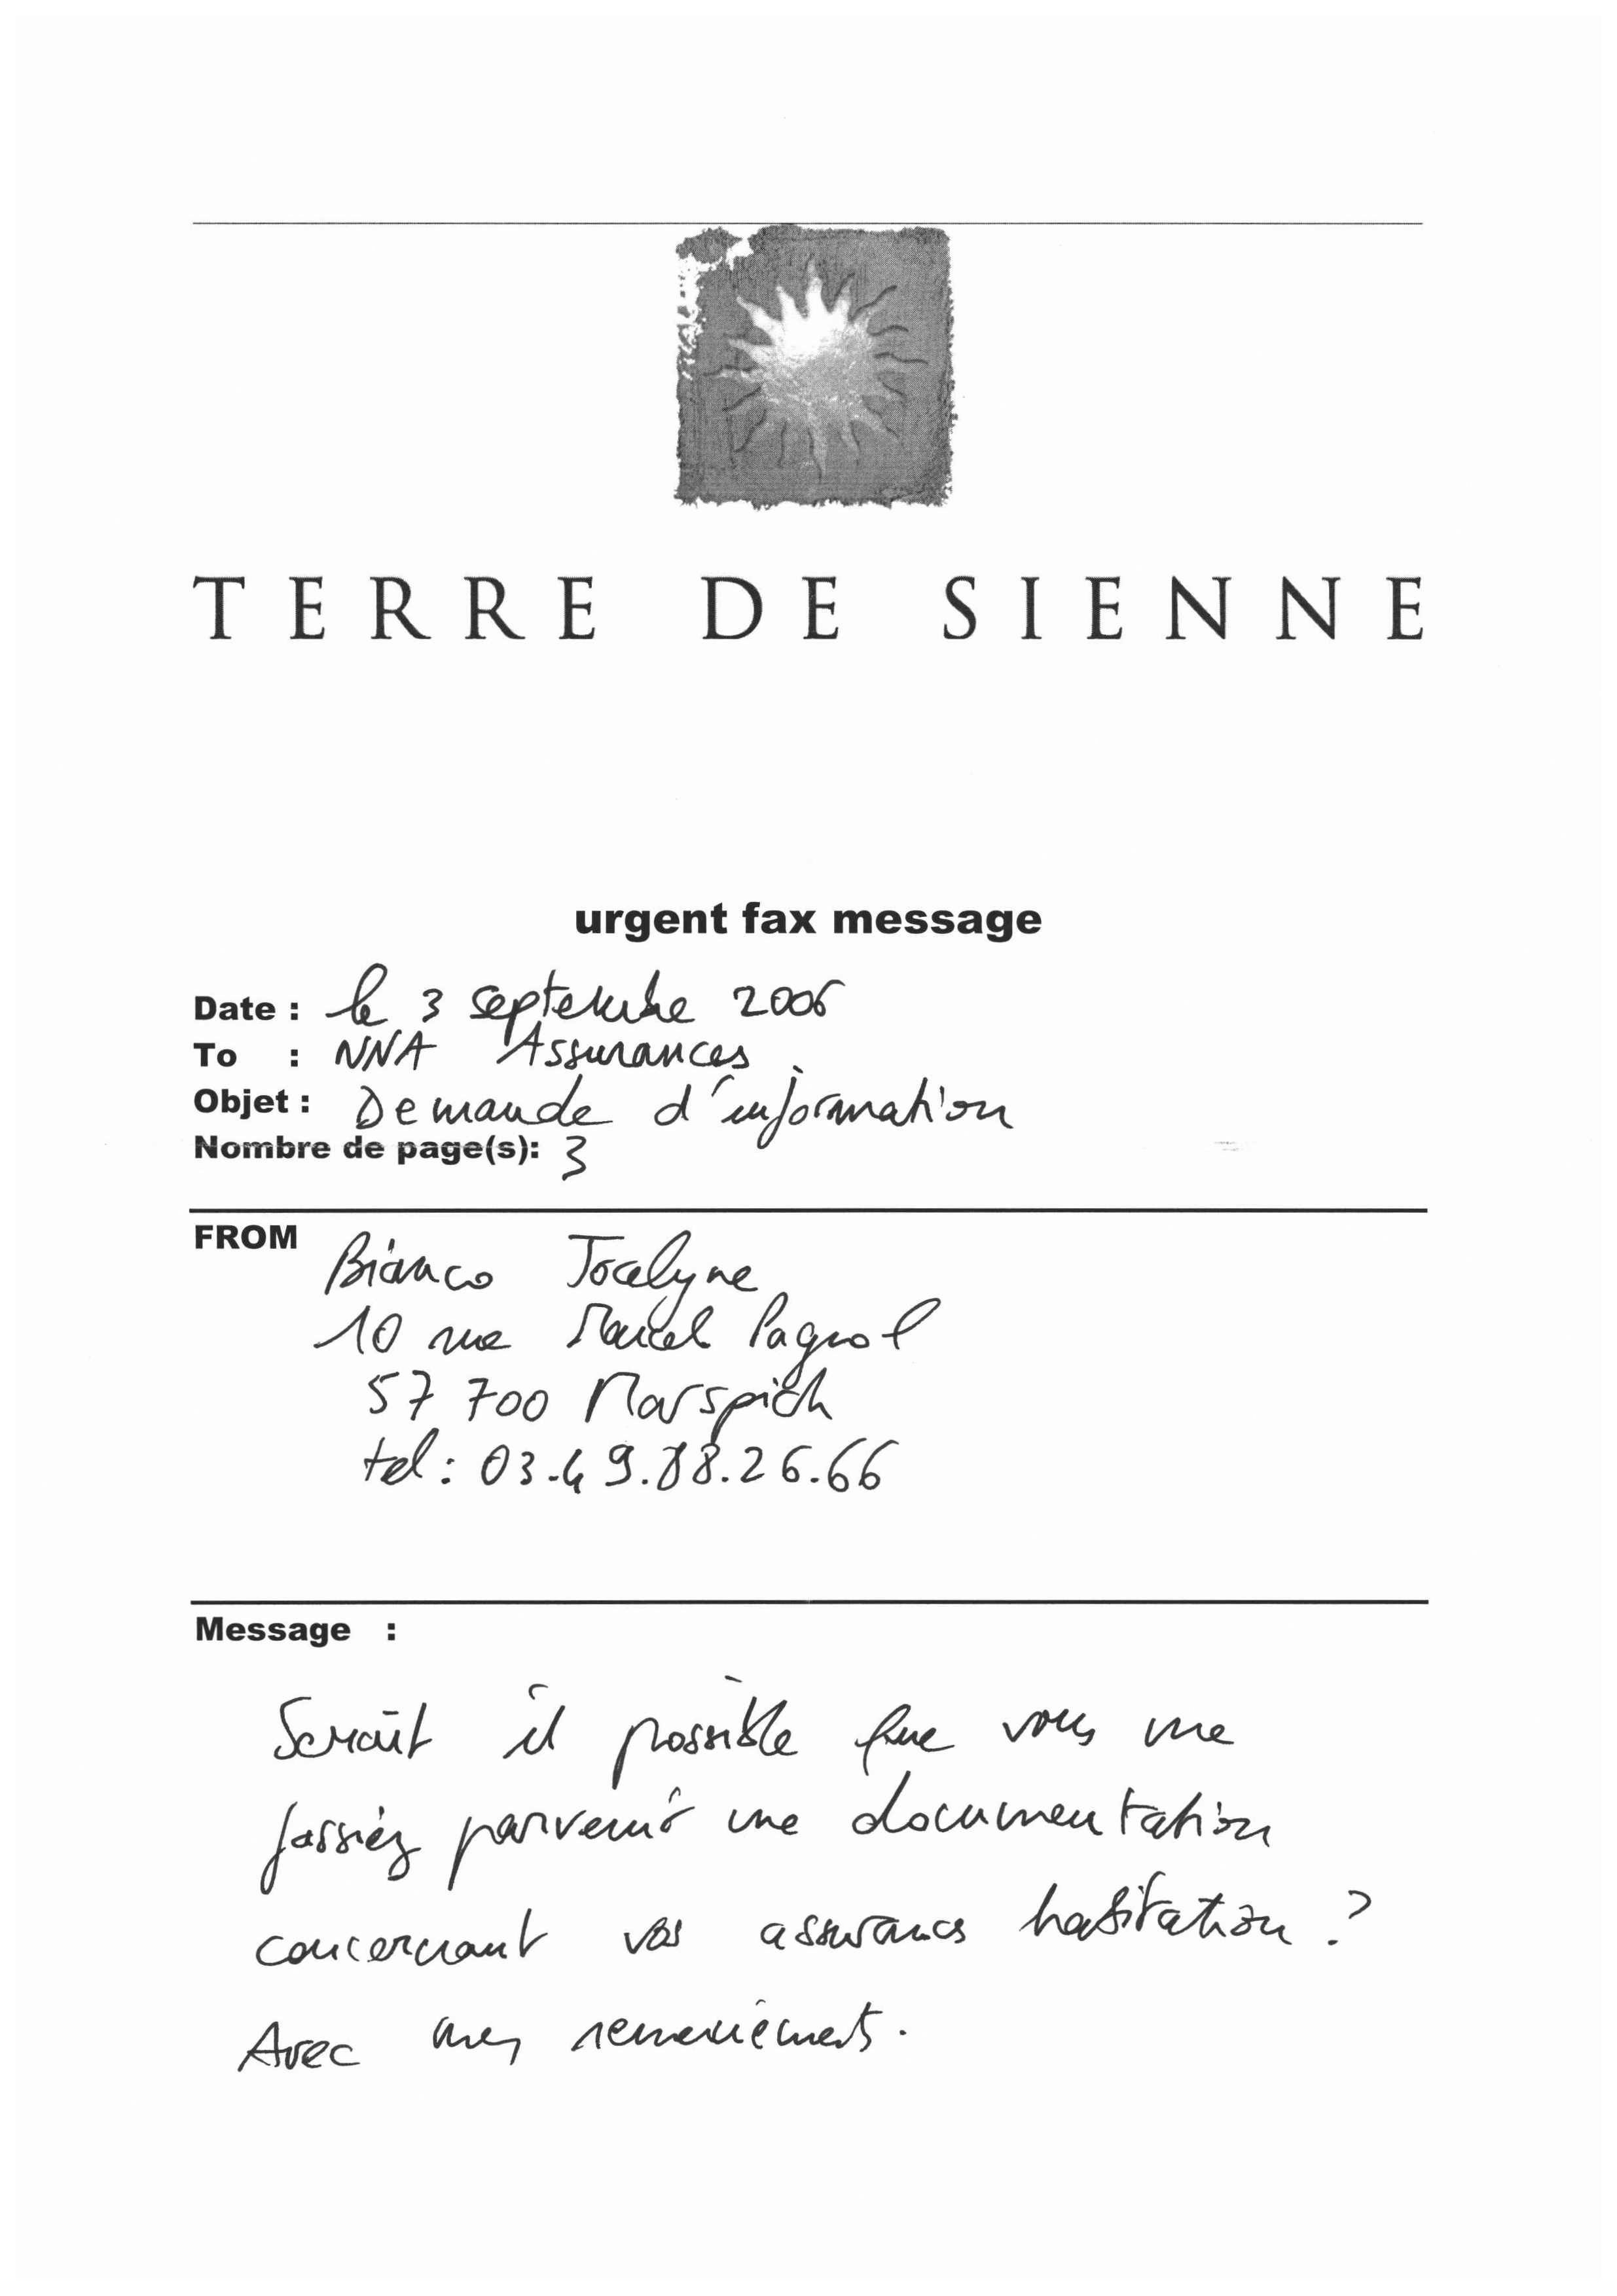 TERRE DE SIENNE
urgent fax message
Date : le 3 septembre 2006
To : NNA Assurances
Objet : Demande d'information
Nombre de page(s): 3
FROM Bianco Jocelyne
10 rue Marcel Pagnol
57 700 Marspich
tel : 03.49.88.26.66
Message :
Serait il possible que vous me
fassiez parvenir une documentation
concernant vos assurances habitation ?
Avec mes remerciements.